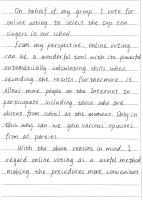 On behalf of my group, I vote for
online voting to select the top ten
singers in our school.
From my perspective, online voting
can be a wonderful tool with its powerful
automatically calculating skills when
recording the results. Furthermore, it
allows more people on the Internet to
participate, including those who are
absent from school at the moment. Only in
this way can we gain various opinions
from all parties.
With the above reasons in mind, I
regard online voting as a useful method
making the procedures more convenient